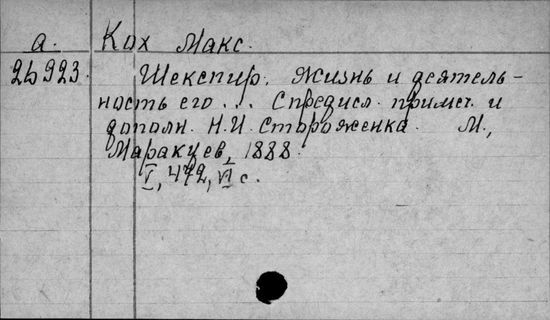 а. Кох Макс.
26923. Шекспир. Жизнь и деятель-
ность его... С предисл. примеч. и
дополн. Н.И. Стороженка. М.,
Маракуев, 1888.
I, 472, VI с.